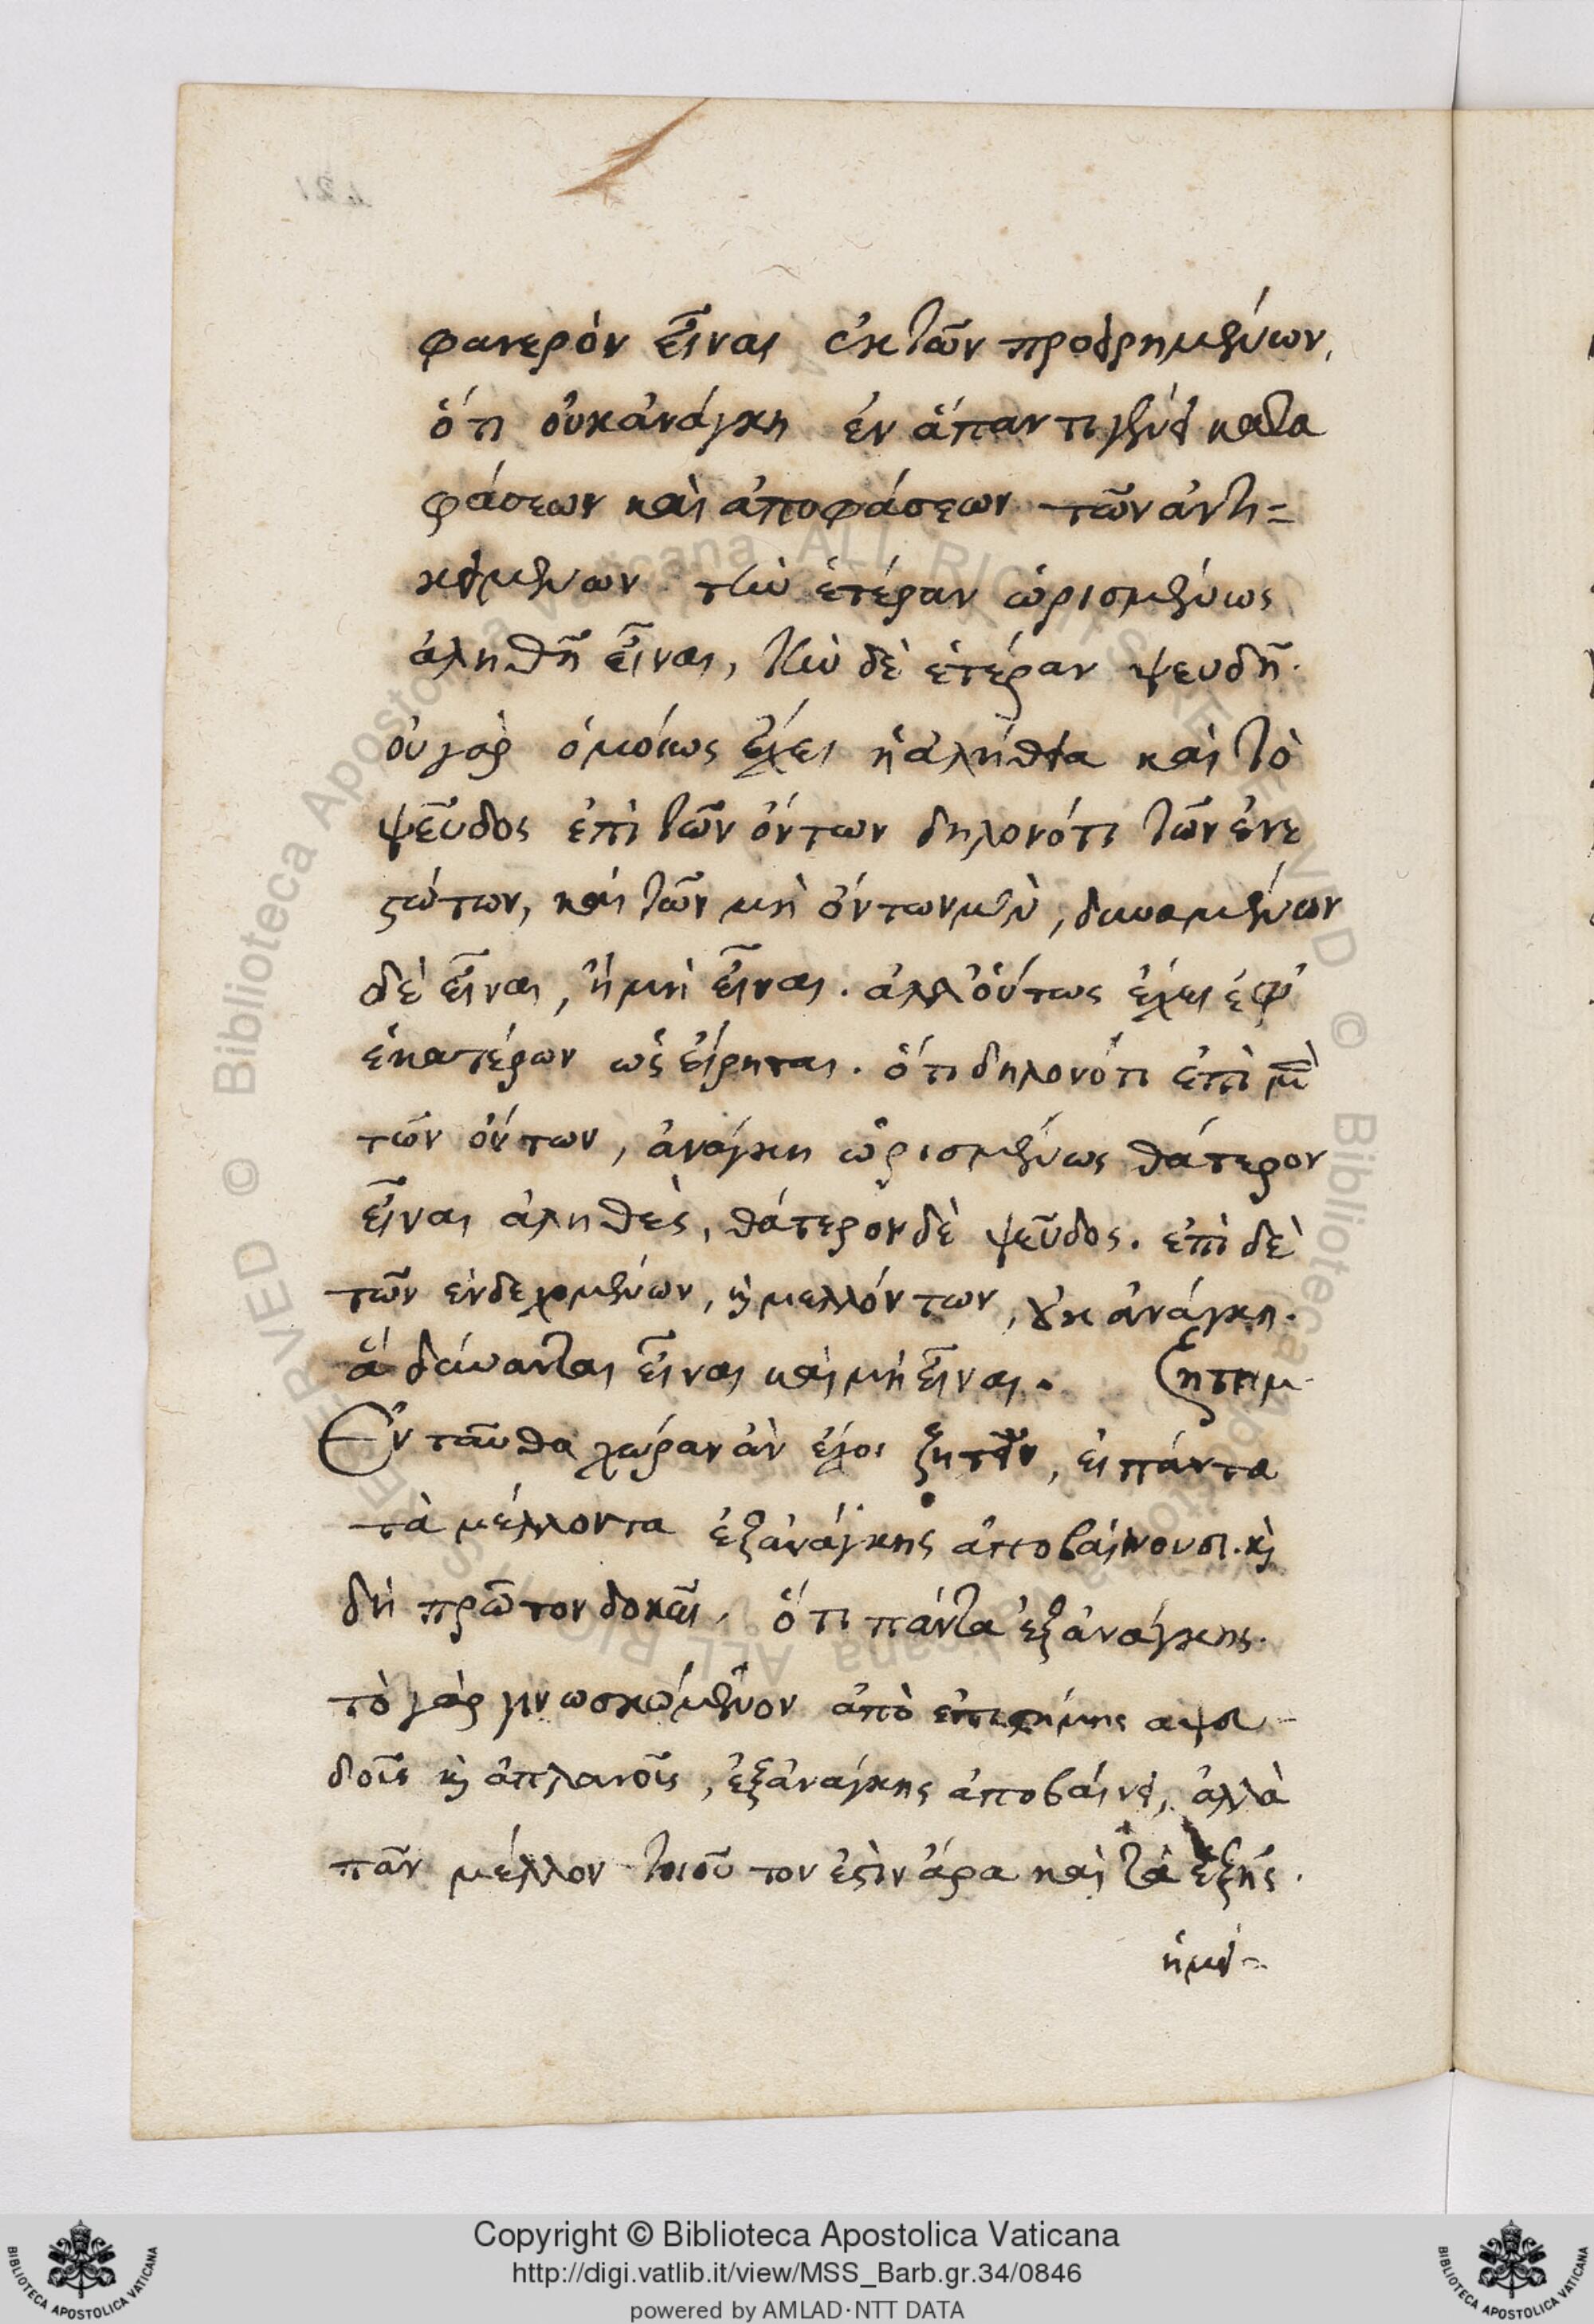 φανερὸν εἶναι ἐκ τῶν προειρημένων,
ὅτι οὐκ ἀνάγκη ἐν ἅπαντι γένει κατα
φάσεων καὶ ἀποφάσεων τῶν ἀντι=
κειμένων τὴν ἑτέραν ὡρισμένως
ἀληθῆ εἶναι, τὴν δὲ ἑτέραν ψευδῆ.
οὐ γὰρ ὁμοίως ἔχει ἡ ἀλήθεια καὶ τὸ
ψεῦδος ἐπὶ τῶν ὄντων δηλονότι τῶν ἐνε
ϛώτων, καὶ τῶν μὴ ὄντων μὲν, δυναμένων
δὲ εἶναι, ἢ μὴ εἶναι. ἀλλ' οὕτως ἔχει ἐφ'
ἑκατέρων ὡς εἴρηται. ὅτι δηλονότι ἐπὶ μὲν
τῶν ὄντων, ἀνάγκη ὡρισμένως θάτερον
εἶναι ἀληθὲς, θάτερον δὲ ψεῦδος. ἐπὶ δὲ
τῶν ἐνδεχομένων, ἢ μελλόντων, οὐκ ἀνάγκη.
ἃ δύνανται εἶναι καὶ μὴ εἶναι. ζητημ.
Ἐνταῦθα χώραν ἂν ἔχοι ζητεῖν, εἰ πάντα
τὰ μέλλοντα ἐξ ἀνάγκης ἀποβαίνουσι. καὶ
δὴ πρῶτον δοκεῖ, ὅτι πάντα ἐξ ἀνάγκης.
τὸ γὰρ γινωσκόμενον ἀπὸ ἐπιϛήμης αψευ-
δοῦς καὶ ἀπλανοῦς, ἐξ ἀνάγκης ἀποβαίνει, ἀλλὰ
πᾶν μέλλον τοιοῦτον ἐϛὶν ἄρα καὶ τὰ ἑξῆς.
ἡμεί-
Copyright © Biblioteca Apostolica Vaticana
http://digi.vatlib.it/view/MSS_Barb.gr.34/0846
powered by AMLAD·NTT DATA